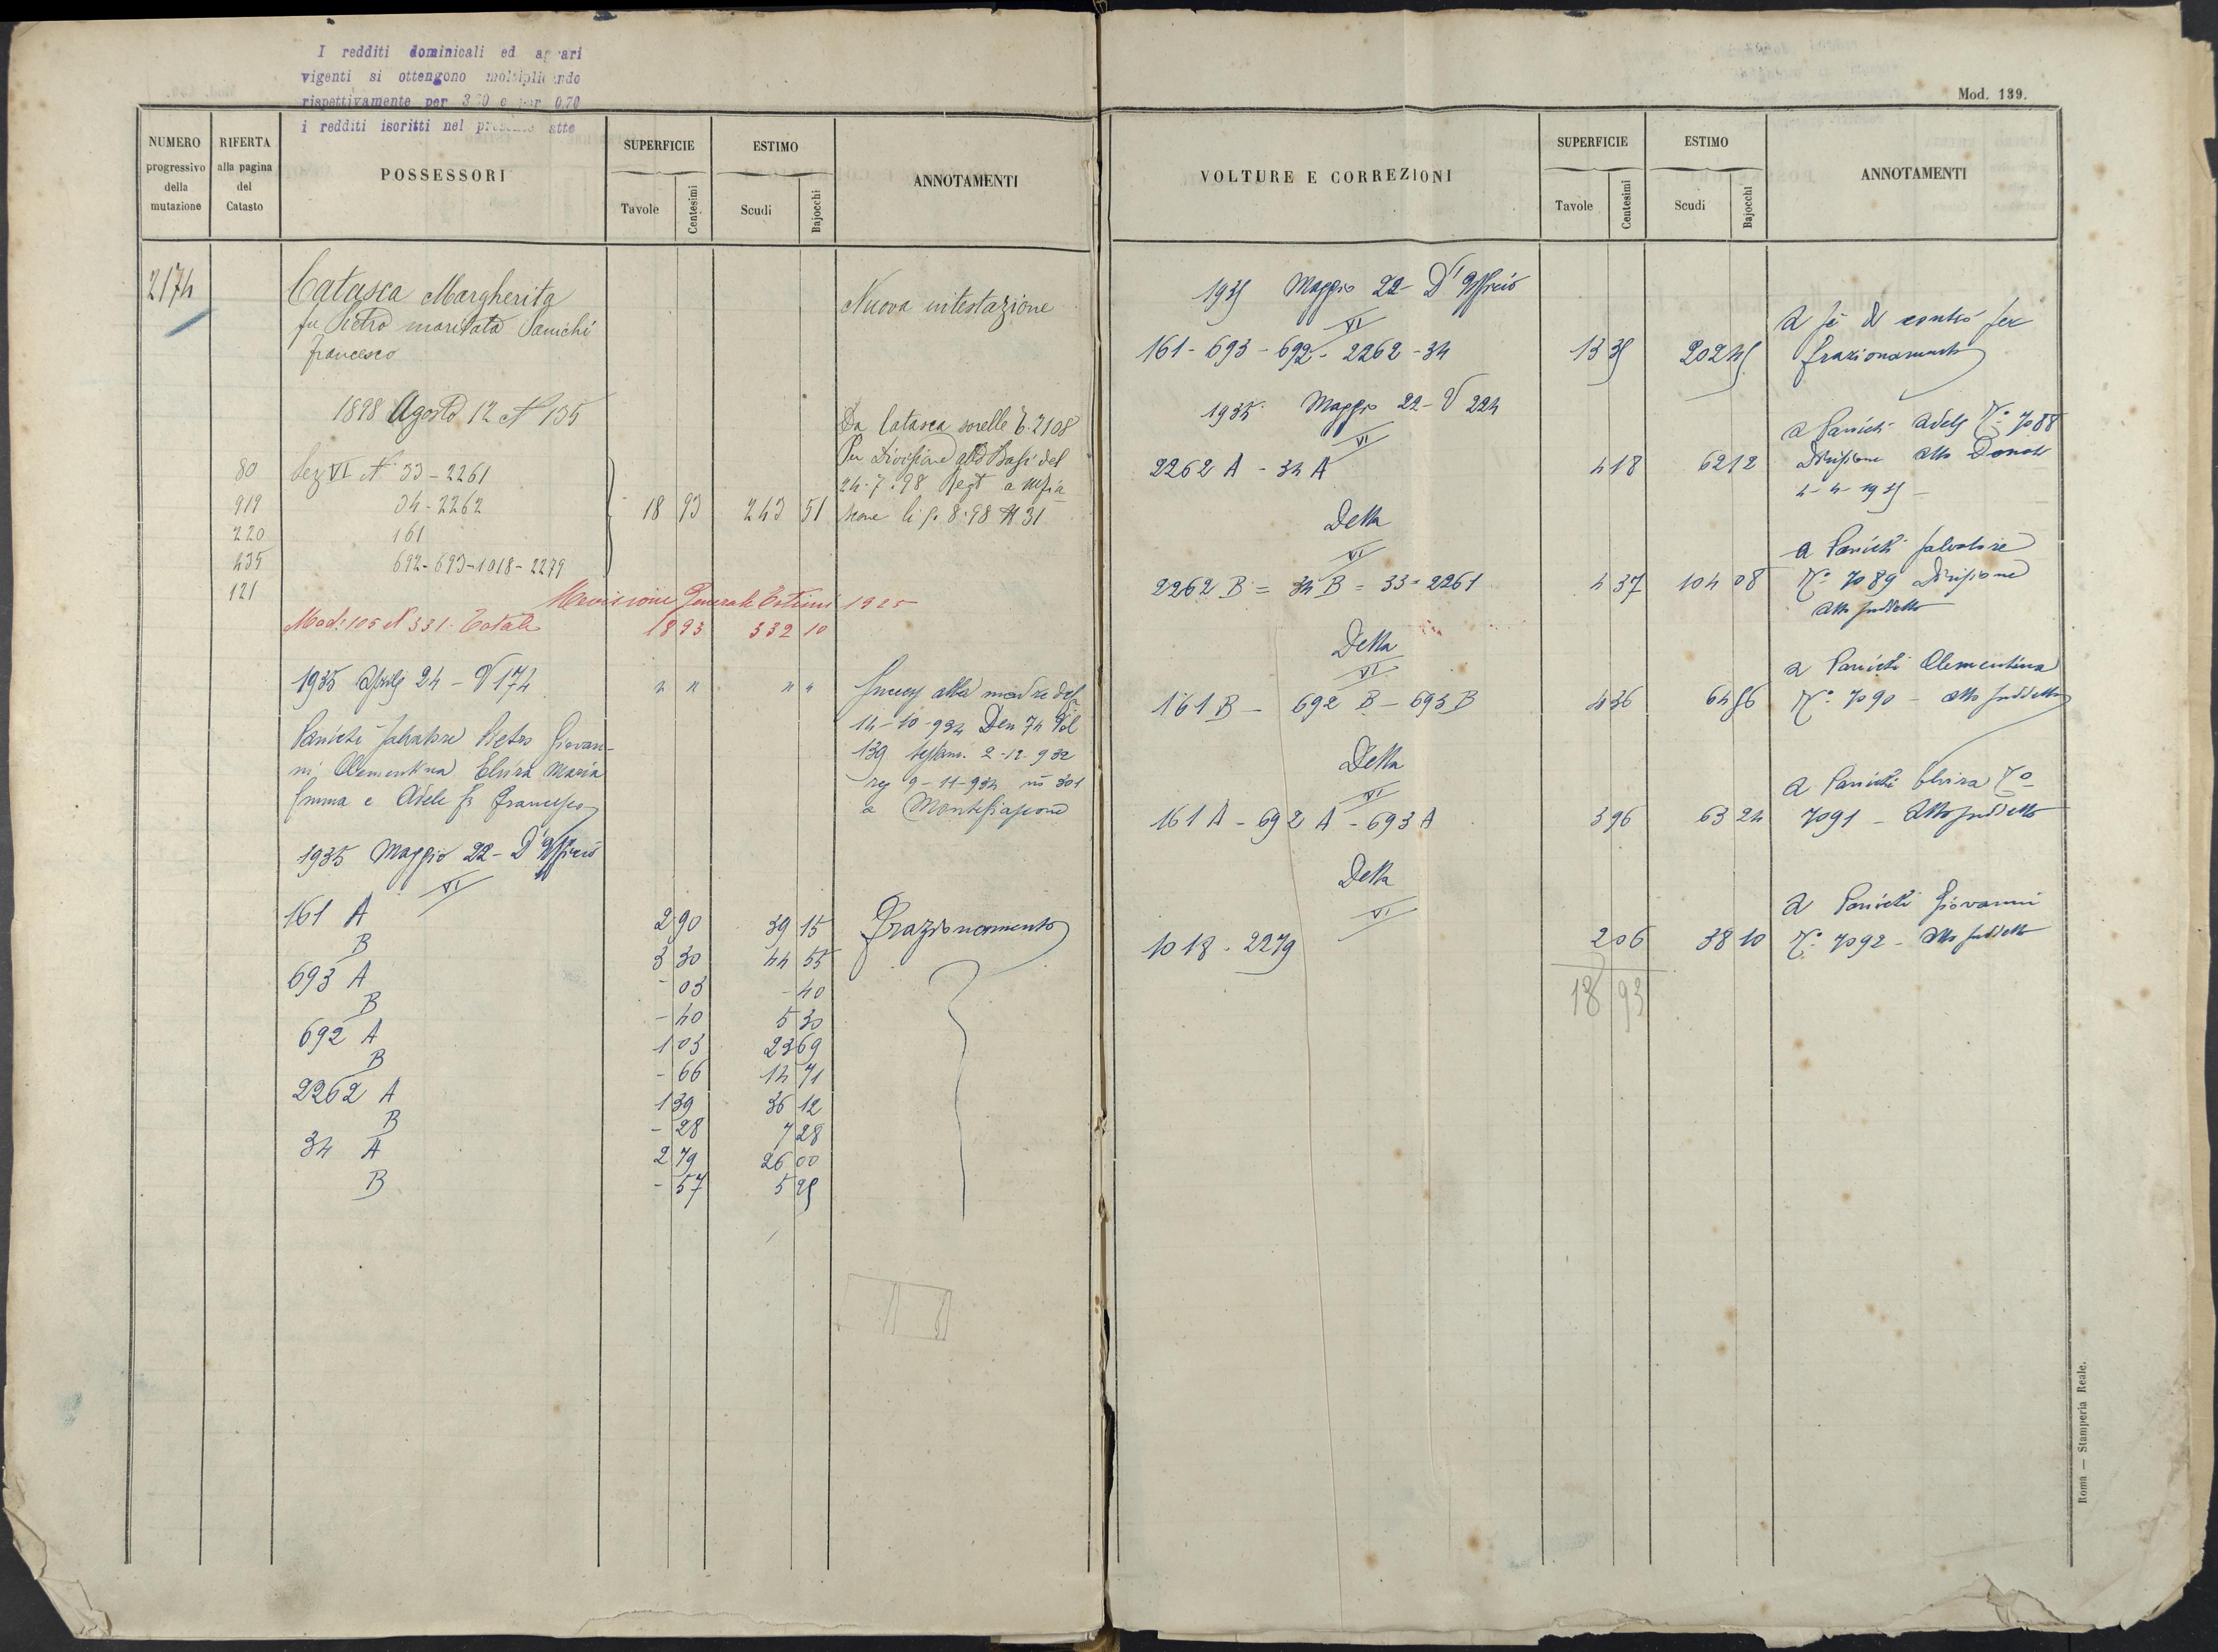 I redditi dominicali ed agrari
vigenti si ottengono moltiplicando
rispettivamente per 3.70 e per 0.70
i redditi iscritti nel presente atto
NUMERO
progressivo
della
mutazione
RIFERTA
alla pagina
del
Catasto
POSSESSORI
SUPERFICIE
Tavole
Centesimi
ESTIMO
Scudi
Bajocchi
ANNOTAMENTI
2174
Catasca Margherita
fu Pietro maritata Panichi
Francesco
Nuova intestazione
1898 Agosto 12 N 135
Da Catasca sorelle 2108
Per Divisione
24-7-98
80 Sez VI N 33-2261
919 34-2262 18 93 243 51
220 161
435 692-693-1018-2279
121
Revisione Generale Estimi 1925
Mod. 105 N 331 - Totale 18 93 332 10
1935 Aprile 24 - V 174 " " " "
Panichi Salvatore Pietro Giovan-
ni Clementina Elvira Maria
Emma e Adele fu Francesco
Succ alla madre del
14-10-934 Den 74 Vol
139 testam. 2-12-932
reg 9-11-934 n 301
a
1935 Maggio 22 - D'Ufficio
VI
161 A 2 90 39 15 Frazionamento
B 3 30 44 55
693 A - 03 - 40
B - 40 5 30
692 A 1 03 23 69
B - 66 14 71
2262 A 1 39 36 12
B - 28 7 28
34 A 2 79 26 00
B - 57 5 25
Mod. 139.
VOLTURE E CORREZIONI
SUPERFICIE
Tavole
Centesimi
ESTIMO
Scudi
Bajocchi
ANNOTAMENTI
1935 Maggio 22 - D'Ufficio
VI
161 - 693 - 692 - 2262 - 34 13 35 202 45
a sè di contro per
frazionamento
1935 Maggio 22 - V 224
VI
2262 A - 34 A 4 18 62 12
a Panichi Adele N° 7088
Divisione atto Donati
4-4-1935
Detta
VI
2262 B = 34 B = 33 = 2261 4 37 104 08
a Panichi Salvatore
N° 7089 Divisione
atto suddetto
Detta
VI
161 B - 692 B - 693 B 4 36 64 56
a Panichi Clementina
N° 7090 - atto suddetto
Detta
VI
161 A - 692 A - 693 A 3 96 63 24
a Panichi Elvira N°
7091 - atto suddetto
Detta
VI
1018 - 2279 2 06 38 10
a Panichi Giovanni
N° 7092 - atto suddetto
18 93
Roma — Stamperia Reale.